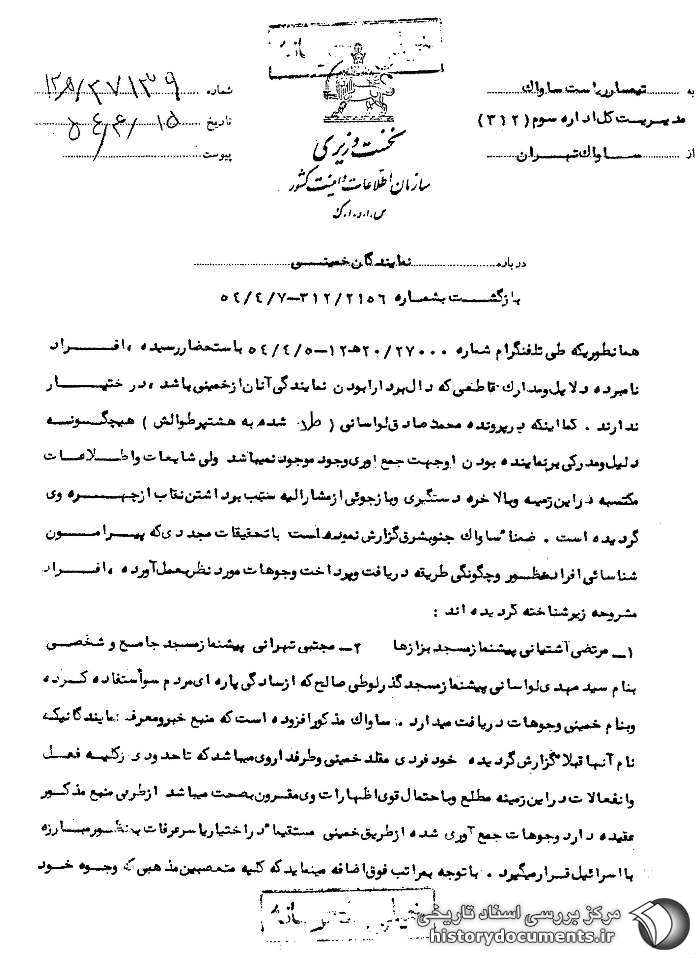 خیلی محرمانه
به تیمسار ریاست ساواک
مدیریت کل اداره سوم (۳۱۲)
از ساواک تهران
شماره ۱۲ﻫ/۳۷۱۳۹
تاریخ ۵۴/۴/۱۵
پیوست
نخست وزیری
سازمان اطلاعات و امنیت کشور
س.ا.و.ا.ک
درباره نمایندگان خمینی
بازگشت بشماره ۳۱۲/۲۱۵۶-۵۴/۴/۷
همانطوریکه طی تلفنگرام شماره ۲۰/۲۷۰۰۰ﻫ۱۲-۵۴/۴/۵ باستحضار رسیده ، افراد
نامبرده دلایل ومدارک قاطعی که دال بر دارا بودن نمایندگی آنان از خمینی باشد ، در اختیار
ندارند . کما اینکه در پرونده محمد صادق لواسانی ( شده به هشتپر طوالش ) هیچگونه
دلیل ومدرکی بر نماینده بودن او جهت جمع آوری وجوه موجود نمیباشد ولی شایعات واطلاعات
مکتسبه در این زمینه وبالاخره دستگیری وبازجوئی از مشارالیه سبب برداشتن نقاب از چهره وی
گردیده است . ضمنا" ساواک جنوبشرق گزارش نموده است با تحقیقات مجددی که پیرامون
شناسائی افراد منظور وچگونگی طریقه دریافت وپرداخت وجوهات مورد نظر بعمل آورده ، افراد
مشروحه زیر شناخته گردیده اند :
۱ـ مرتضی آشتیانی پیشنماز مسجد بزازها ۲ـ مجتبی تهرانی پیشنماز مسجد جامع و شخصی
بنام سید مهدی لواسانی پیشنماز مسجد گذر لوطی صالح که از سادگی پاره ای مردم سوأستفاده کرده
وبنام خمینی وجوهات دریافت میدارد . ساواک مذکور افزوده است که منبع خبر ومعرف نمایندگانیکه
نام آنها قبلا" گزارش گردیده خود فردی مقلد خمینی وطرفدار وی میباشد که تا حدودی از کلیه فعل
وانفعالات در این زمینه مطلع وبا احتمال قوی اظهارات وی مقرون بصحت میباشد از طرفی منبع مذکور
عقیده دارد وجوهات جمع آوری شده از طریق خمینی مستقیما" در اختیار یاسر عرفات بمنظور مبارزه
با اسرائیل قرار میگیرد . با توجه بمراتب فوق اضافه مینماید که کلیه متعصبین مذهبی که وجوه خود
خیلی محرمانه
مرکز بررسی اسناد تاریخی
historydocuments.ir